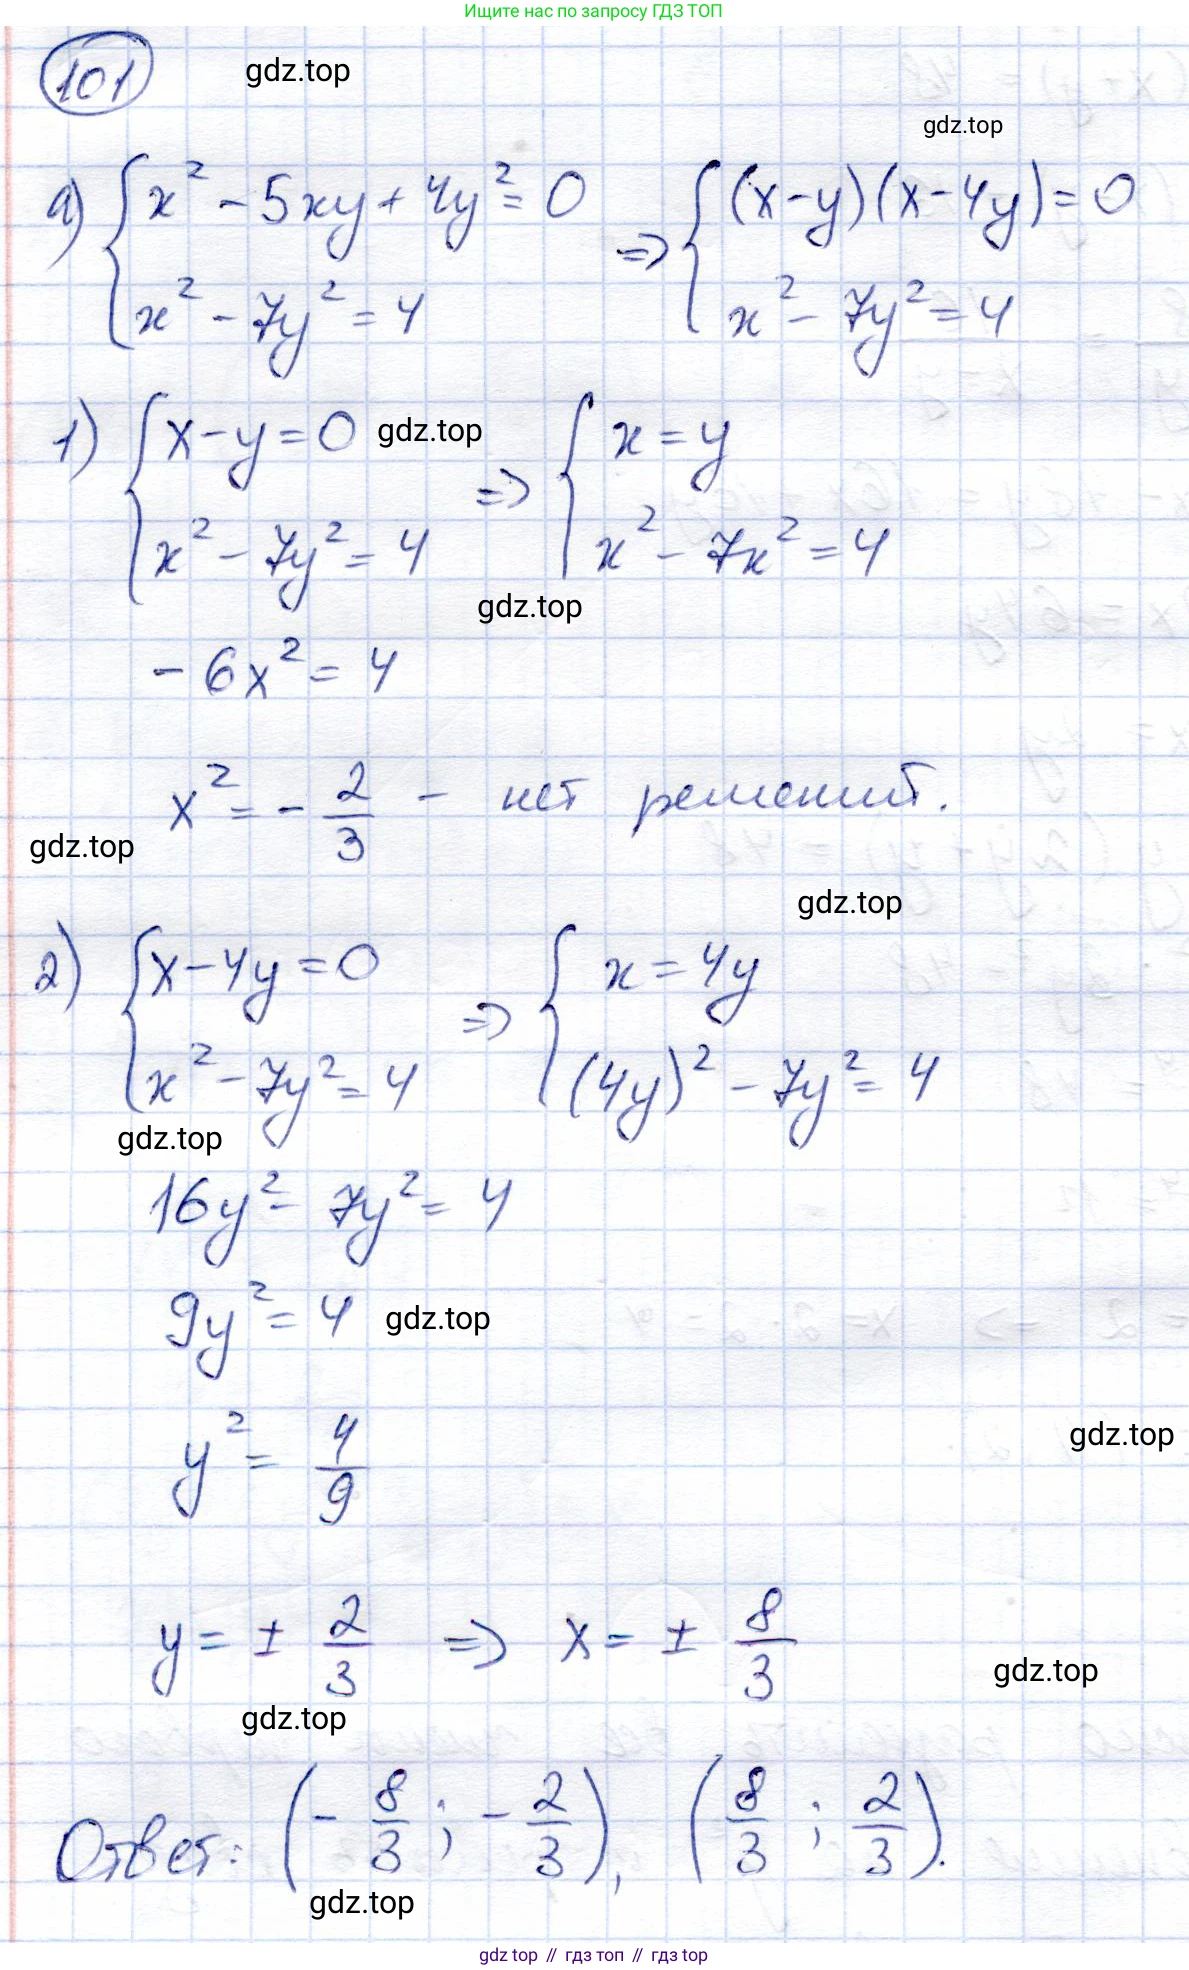 Ищите нас по запросу ГДЗ ТОП
101 gdz.top
gdz.top
а) { x² - 5xy + 4y² = 0 => { (x-y)(x-4y) = 0
x² - 7y² = 4 x² - 7y² = 4
1) { x-y=0 gdz.top => { x=y
x² - 7y² = 4 x² - 7x² = 4
gdz.top
-6x² = 4
x² = - 2/3 - нет решений.
gdz.top
gdz.top
2) { x-4y=0 => { x=4y
x² - 7y² = 4 (4y)² - 7y² = 4
gdz.top
16y² - 7y² = 4
9y² = 4 gdz.top
y² = 4/9 gdz.top
y = ± 2/3 => x = ± 8/3
gdz.top
gdz.top
Ответ: (- 8/3 ; - 2/3), (8/3 ; 2/3).
gdz.top
gdz top // гдз топ // гдз top